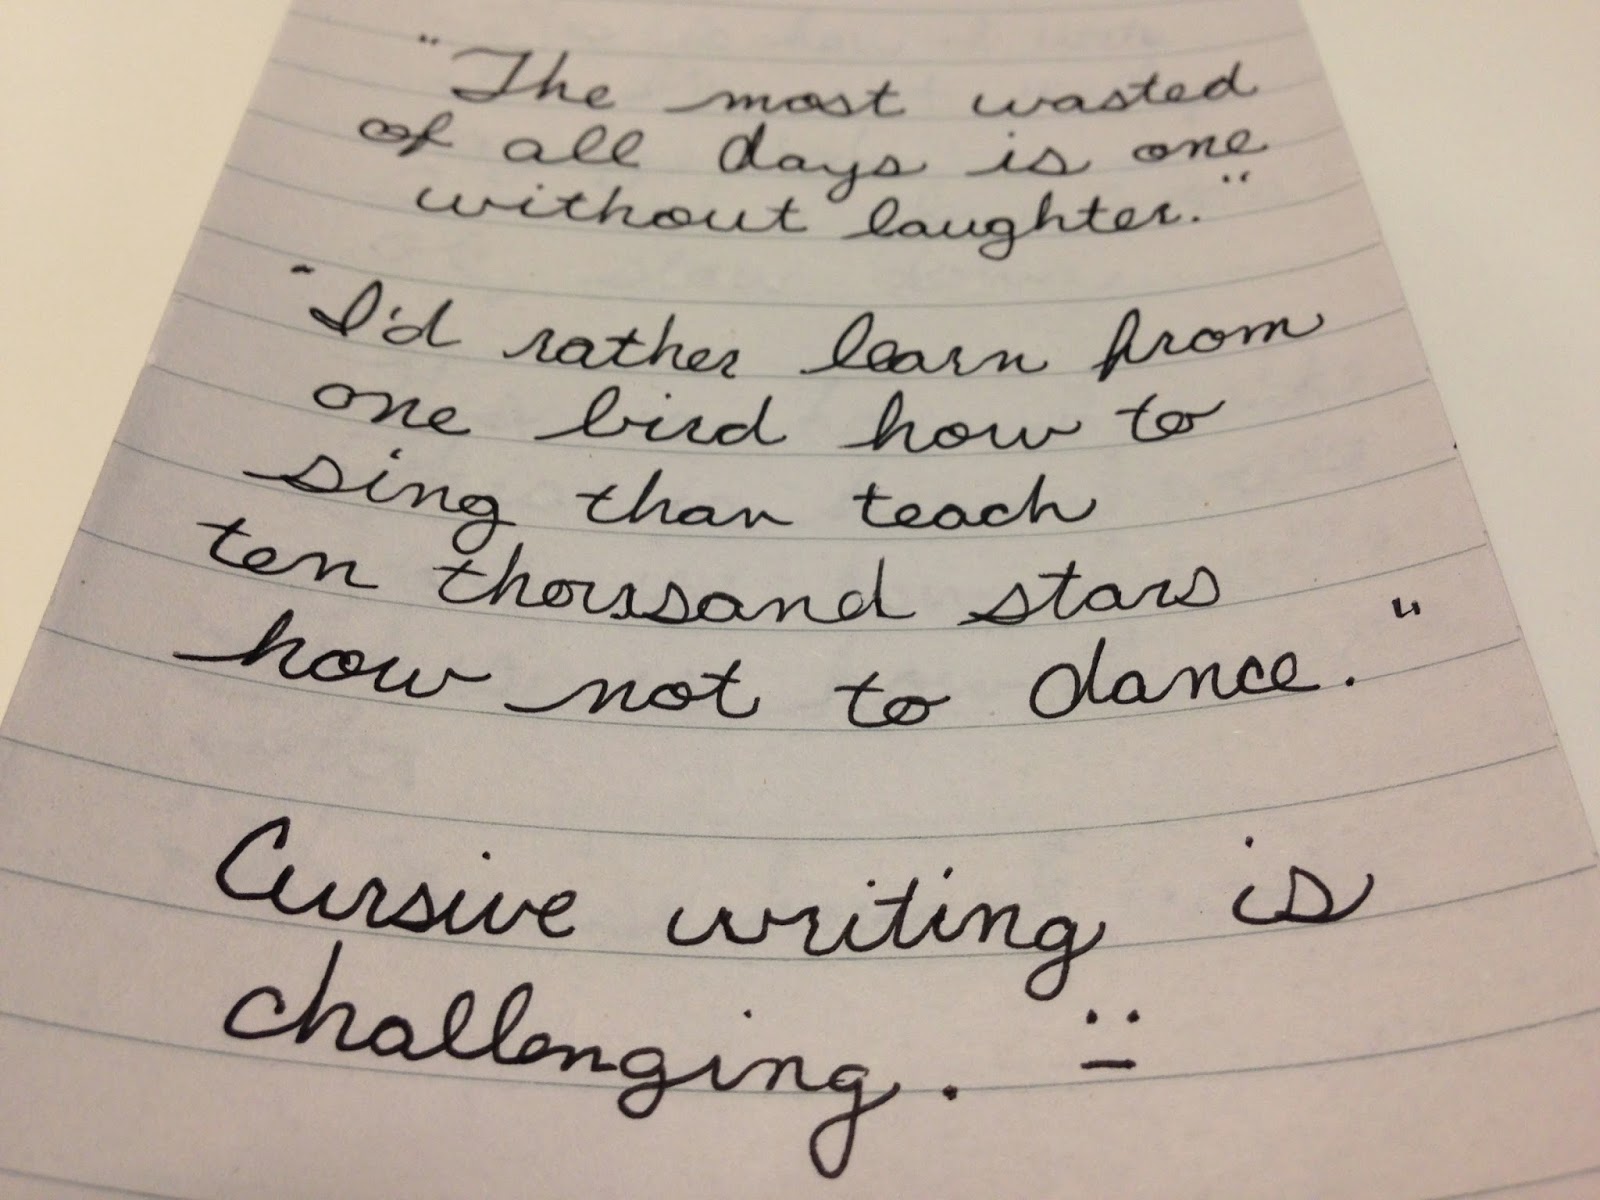 "The most wasted
of all days is one
without laughter."
"I'd rather learn from
one bird how to
sing than teach
ten thousand stars
how not to dance."
Cursive writing is
challenging.